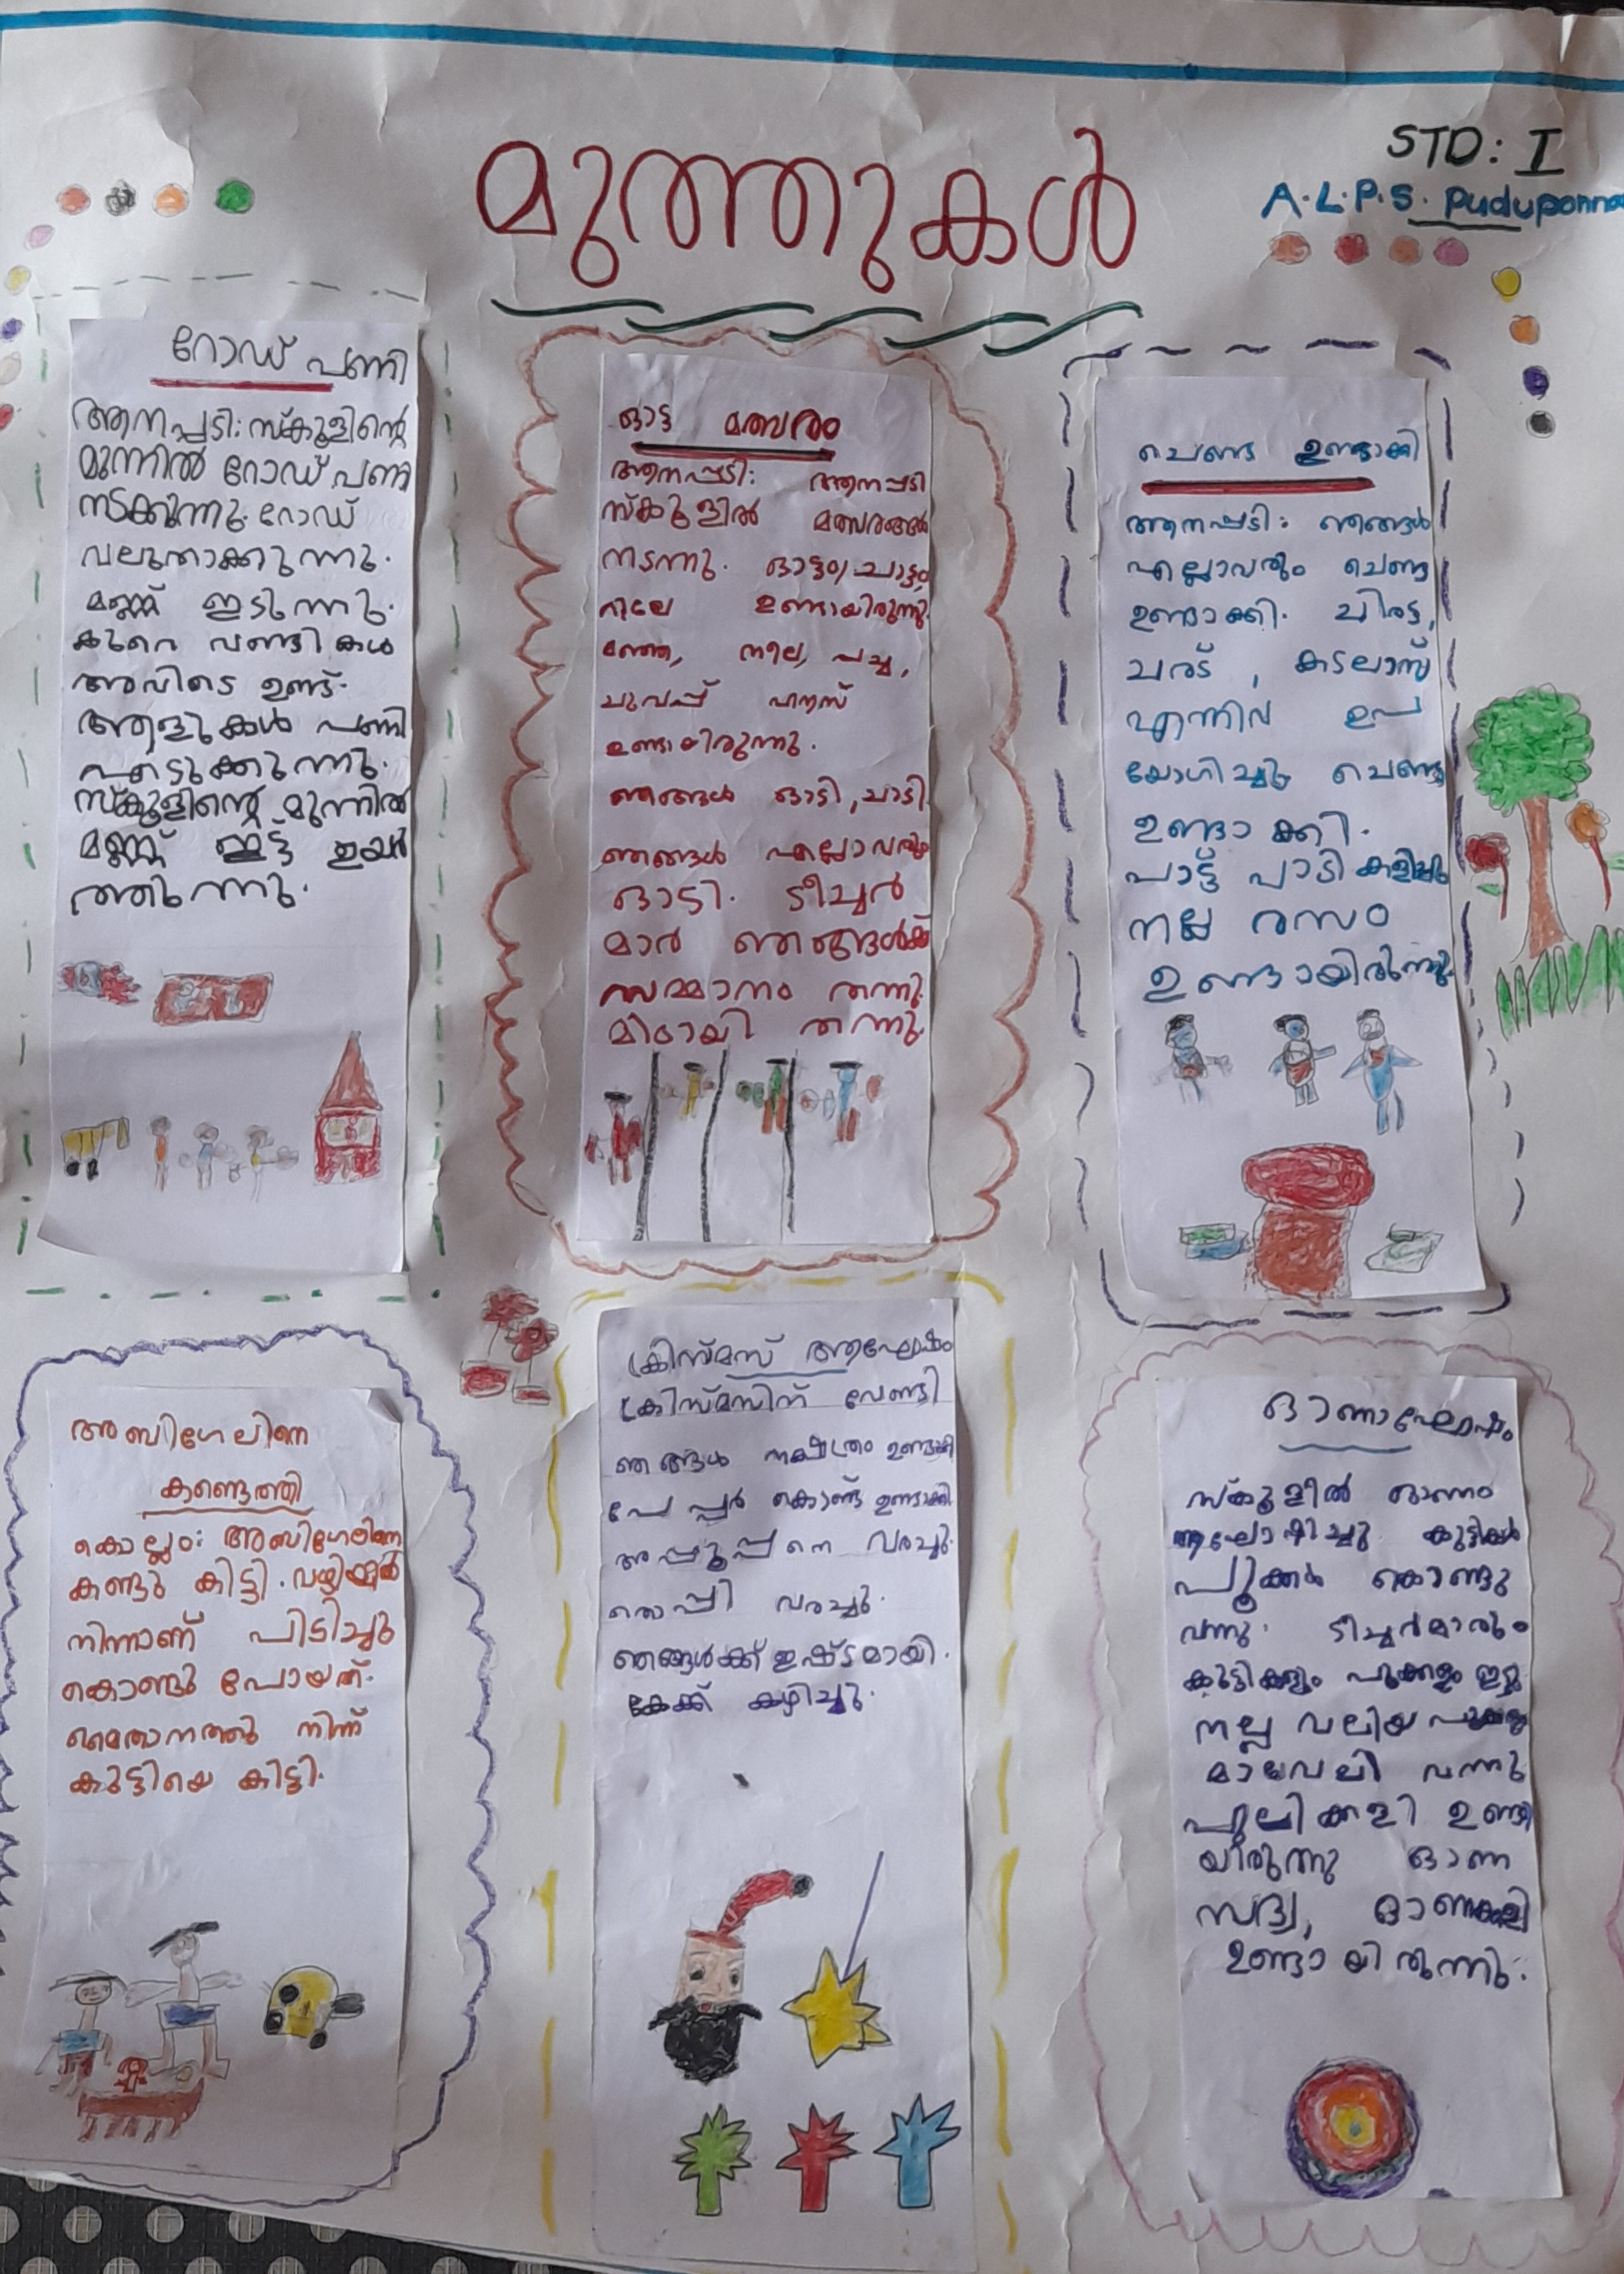 മുത്തുകൾ
STD: I
A.L.P.S. Puduponna
റോഡ് പണി
ആനപ്പടി: സ്കൂളിന്റെ
മുന്നിൽ റോഡ് പണി
നടക്കുന്നു. റോഡ്
വലുതാക്കുന്നു.
മണ്ണ് ഇടുന്നു.
കുറെ വണ്ടികൾ
അവിടെ ഉണ്ട്.
ആളുകൾ പണി
എടുക്കുന്നു.
സ്കൂളിന്റെ മുന്നിൽ
മണ്ണ് ഇട്ട് ഉയർ
ത്തുന്നു.
ഓട്ട മത്സരം
ആനപ്പടി: ആനപ്പടി
സ്കൂളിൽ മത്സരങ്ങൾ
നടന്നു. ഓട്ടം, ചാട്ടം,
റിലേ ഉണ്ടായിരുന്നു.
മഞ്ഞ, നീല, പച്ച,
ചുവപ്പ് ഹൗസ്
ഉണ്ടായിരുന്നു.
ഞങ്ങൾ ഓടി, ചാടി
ഞങ്ങൾ എല്ലാവരും
ഓടി. ടീച്ചർ
മാർ ഞങ്ങൾക്ക്
സമ്മാനം തന്നു.
മിഠായി തന്നു.
ചെണ്ട ഉണ്ടാക്കി
ആനപ്പടി: ഞങ്ങൾ
എല്ലാവരും ചെണ്ട
ഉണ്ടാക്കി. ചിരട്ട,
ചരട്, കടലാസ്
എന്നിവ ഉപ
യോഗിച്ചു ചെണ്ട
ഉണ്ടാക്കി.
പാട്ട് പാടി കളിച്ചു
നല്ല രസം
ഉണ്ടായിരുന്നു.
അബിഗേലിനെ
കണ്ടെത്തി
കൊല്ലം: അബിഗേലിനെ
കണ്ടു കിട്ടി. വഴിയിൽ
നിന്നാണ് പിടിച്ചു
കൊണ്ടു പോയത്.
മൈതാനത്തു നിന്ന്
കുട്ടിയെ കിട്ടി.
ക്രിസ്മസ് ആഘോഷം
ക്രിസ്മസിന് വേണ്ടി
ഞങ്ങൾ നക്ഷത്രം ഉണ്ടാക്കി
പേപ്പർ കൊണ്ട് ഉണ്ടാക്കി
അപ്പൂപ്പനെ വരച്ചു.
തൊപ്പി വരച്ചു.
ഞങ്ങൾക്ക് ഇഷ്ടമായി.
കേക്ക് കഴിച്ചു.
ഓണാഘോഷം
സ്കൂളിൽ ഓണം
ആഘോഷിച്ചു കുട്ടികൾ
പൂക്കൾ കൊണ്ടു
വന്നു. ടീച്ചർമാരും
കുട്ടികളും പൂക്കളം ഇട്ടു.
നല്ല വലിയ പൂക്കളം
മാവേലി വന്നു
പുലിക്കളി ഉണ്ടാ
യിരുന്നു ഓണ
സദ്യ, ഓണക്കളി
ഉണ്ടായിരുന്നു.